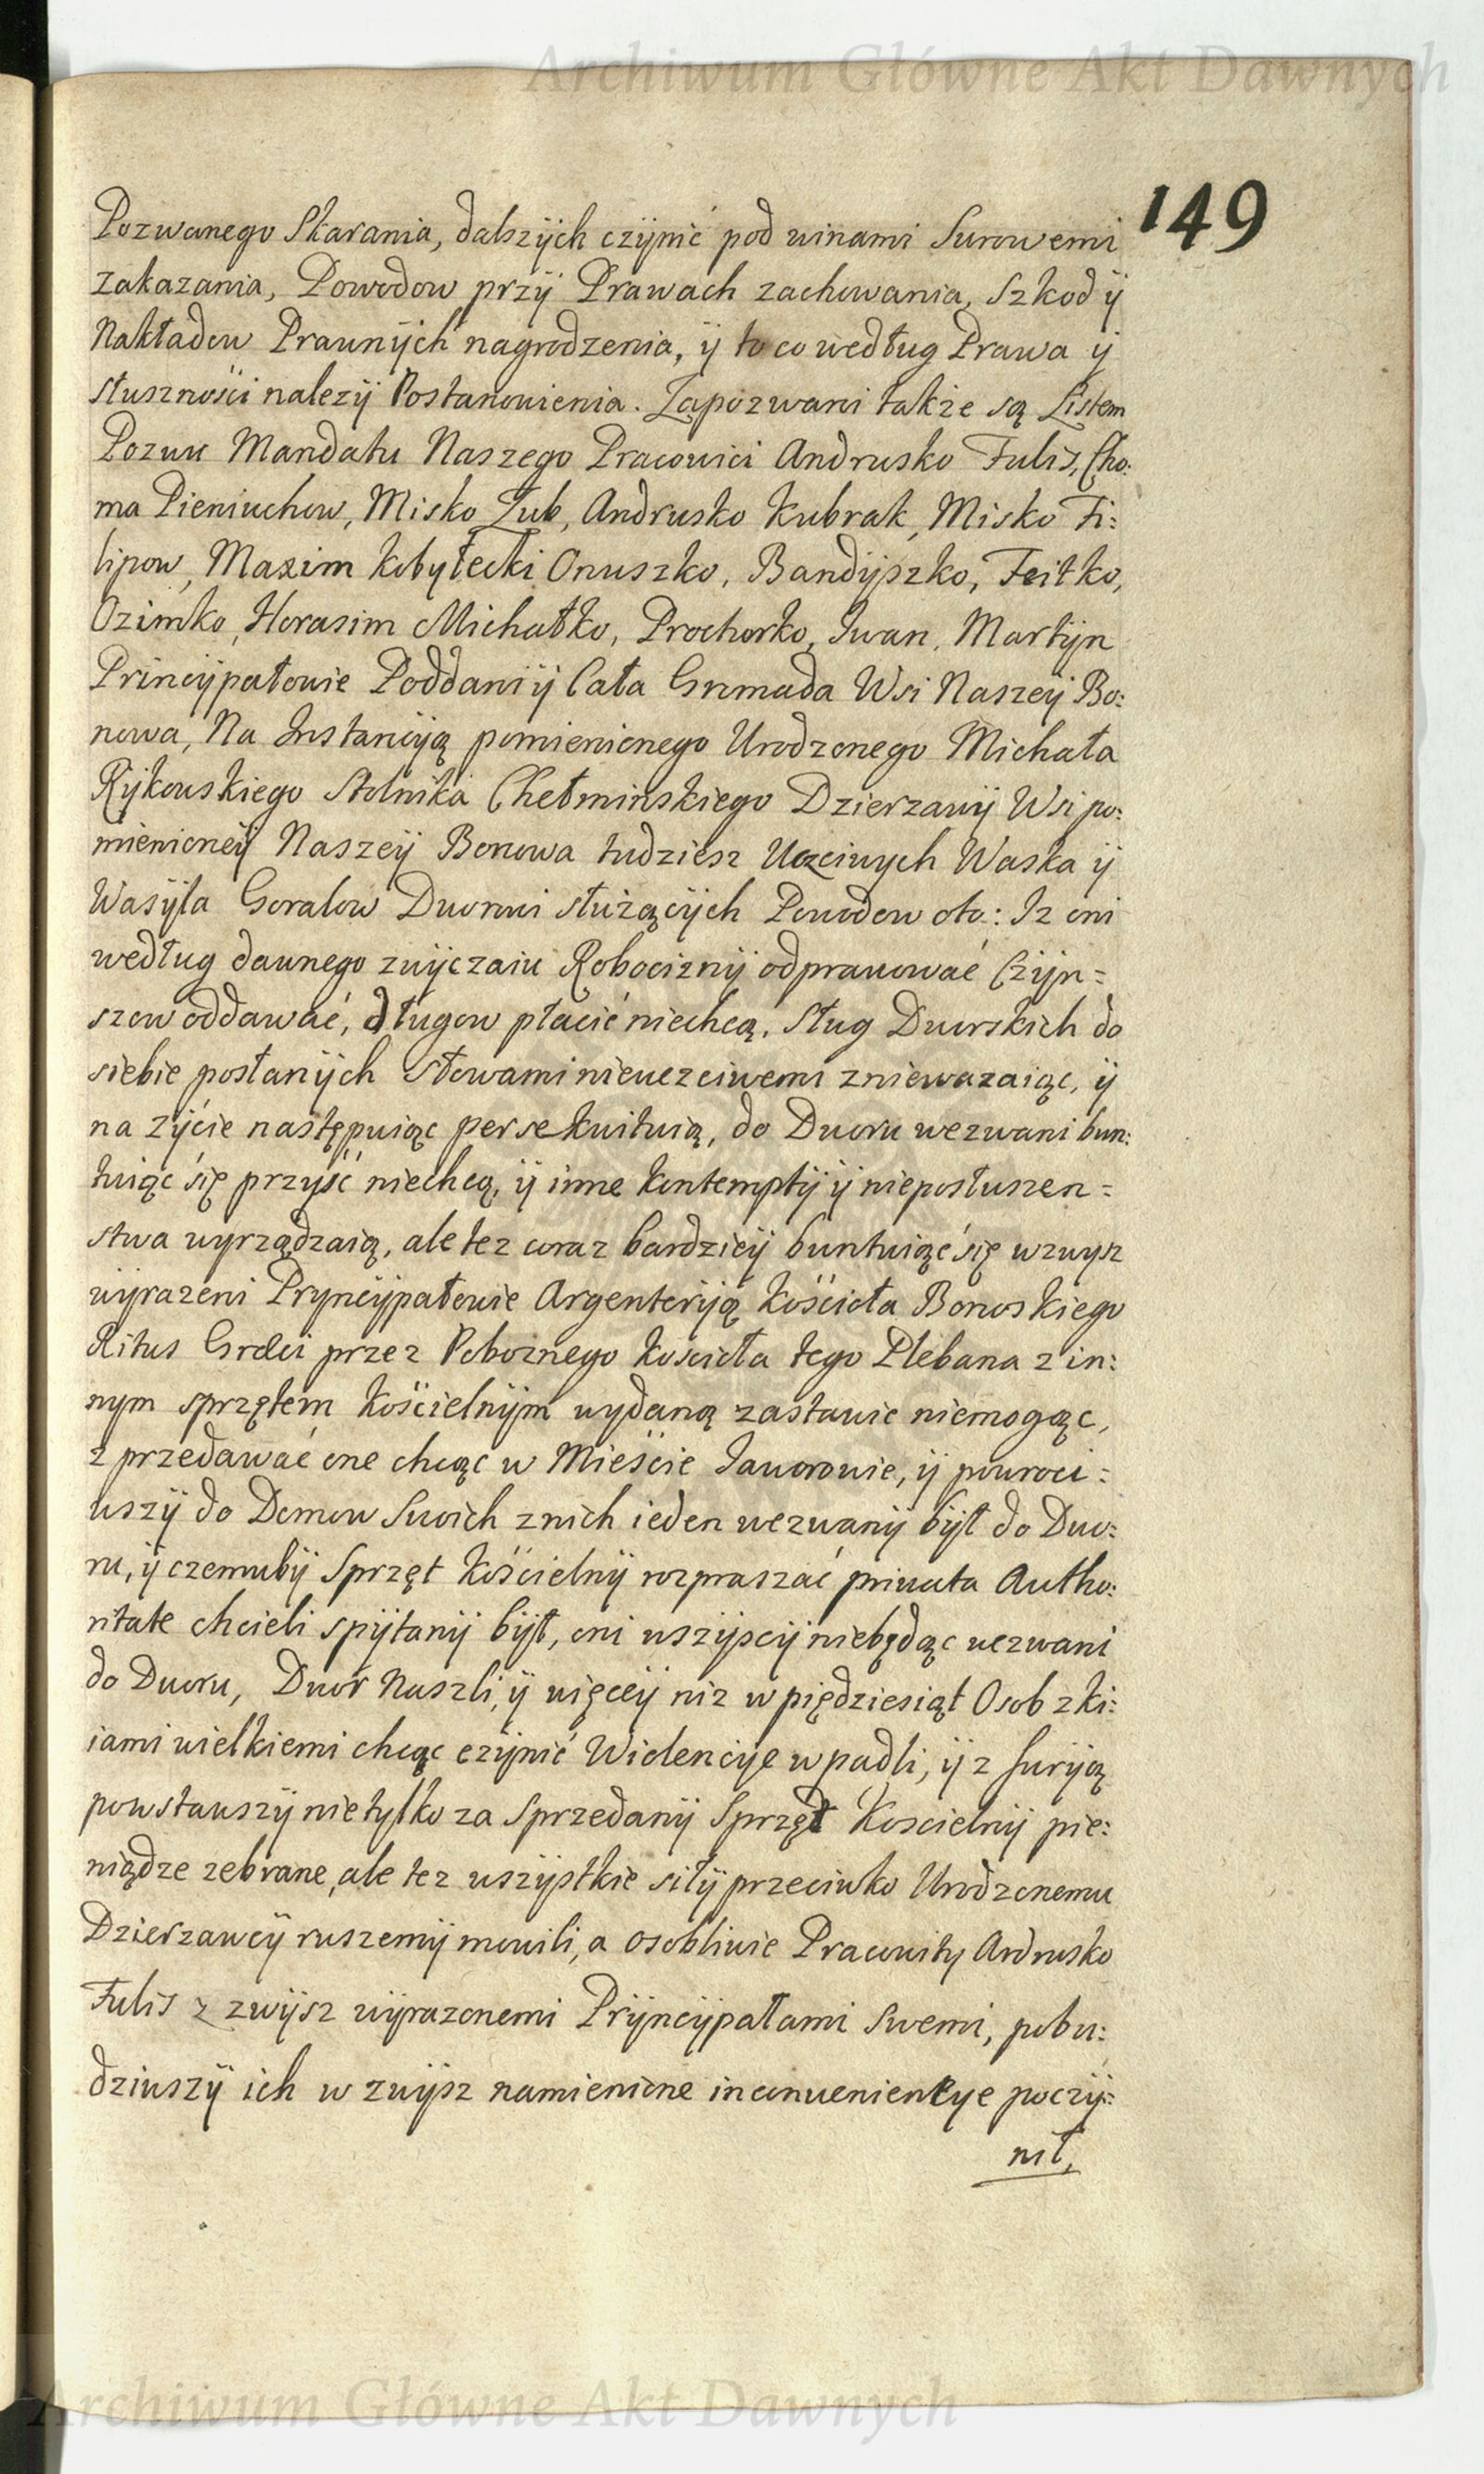 Archiwum Główne Akt Dawnych
149
Pozwanego Skarania, dalszÿch czÿnić pod winami Surowemi
zakazania, Powodow przÿ Prawach zachowania, Szkod ÿ
Nakładow Prawnÿch nagrodzenia, ÿ to co według Prawa ÿ
słusznosći nalezÿ Postanowienia. Zapozwani także są Listem
Pozwu Mandatu Naszego Pracowici Andrusko Fulis, Cho:
ma Pieniuchow, Misko Zub, Andrusko Kubrak, Misko Fi:
lipow, Maxim Kobyłecki Onuszko, Bandÿszko, Feitko,
Ozimko, Harasim Michałko, Prochorko, Iwan, Martÿn
Principÿpałowie Poddani ÿ Cała Gromada Wsi Naszeÿ Bo:
nowa, Na Instancÿą pomienionego Urodzonego Michała
Rÿkowskiego Stolnika Chełminskiego Dzierzawÿ Wsi po:
mienioneÿ Naszeÿ Bonowa tudziesz Uczciwych Waska ÿ
Wasÿla Goralow Dworowi służącÿch Powodow oto: Iz oni
według dawnego zwÿczaiu Robociznÿ odprawować Czÿn=
szow oddawać, długow płacić niechcą, Sług Dworskich do
siebie posłanÿch słowami nieuczciwemi zniewazaiąc, ÿ
na zÿcie następuiąc persekwituią, do Dworu wezwani bun:
tuiąc się przÿść niechcą, ÿ inne kontemptÿ ÿ nieposłuszen=
stwa wyrządzaią, ale tez coraz bardzieÿ buntuiąc się wzwysz
wÿrazeni Pryncÿpałowie Argenterÿą Kośćioła Bonowskiego
Ritus Graeci przez Poboznego Koscioła tego Plebana z in:
nym sprzętem Kośćielnÿm wydaną zastawić niemogąc,
z przedawać one chcąc w Mieśćie Jaworowie, ÿ powroci:
wszÿ do Domow Swoich znich ieden wezwanÿ bÿł do Dwo:
ru, ÿ czemubÿ Sprzęt Kośćielnÿ rozpraszać privata Autho:
ritate chcieli spÿtanÿ bÿł, oni wszÿscÿ niebędąc wezwani
do Dworu, Dwor Naszli, ÿ więceÿ niz w piędziesiąt Osob z ki:
iami wielkiemi chcąc czÿnić Wiolencÿe wpadli, ÿ z furÿą
powstawszÿ nietylko za Sprzedanÿ Sprzęt Koscielnÿ pie:
niądze zebrane, ale tez wszÿstkie siłÿ przeciwko Urodzonemu
Dzierzawcÿ ruszemÿ mowili, a osobliwie Pracowity Andrusko
Fulis z zwÿsz wÿrazonemi Prÿncÿpałami Swemi, pobu:
dziwszÿ ich w zwÿsz namienione inconuenientye poczÿ:
nił,
Archiwum Główne Akt Dawnych